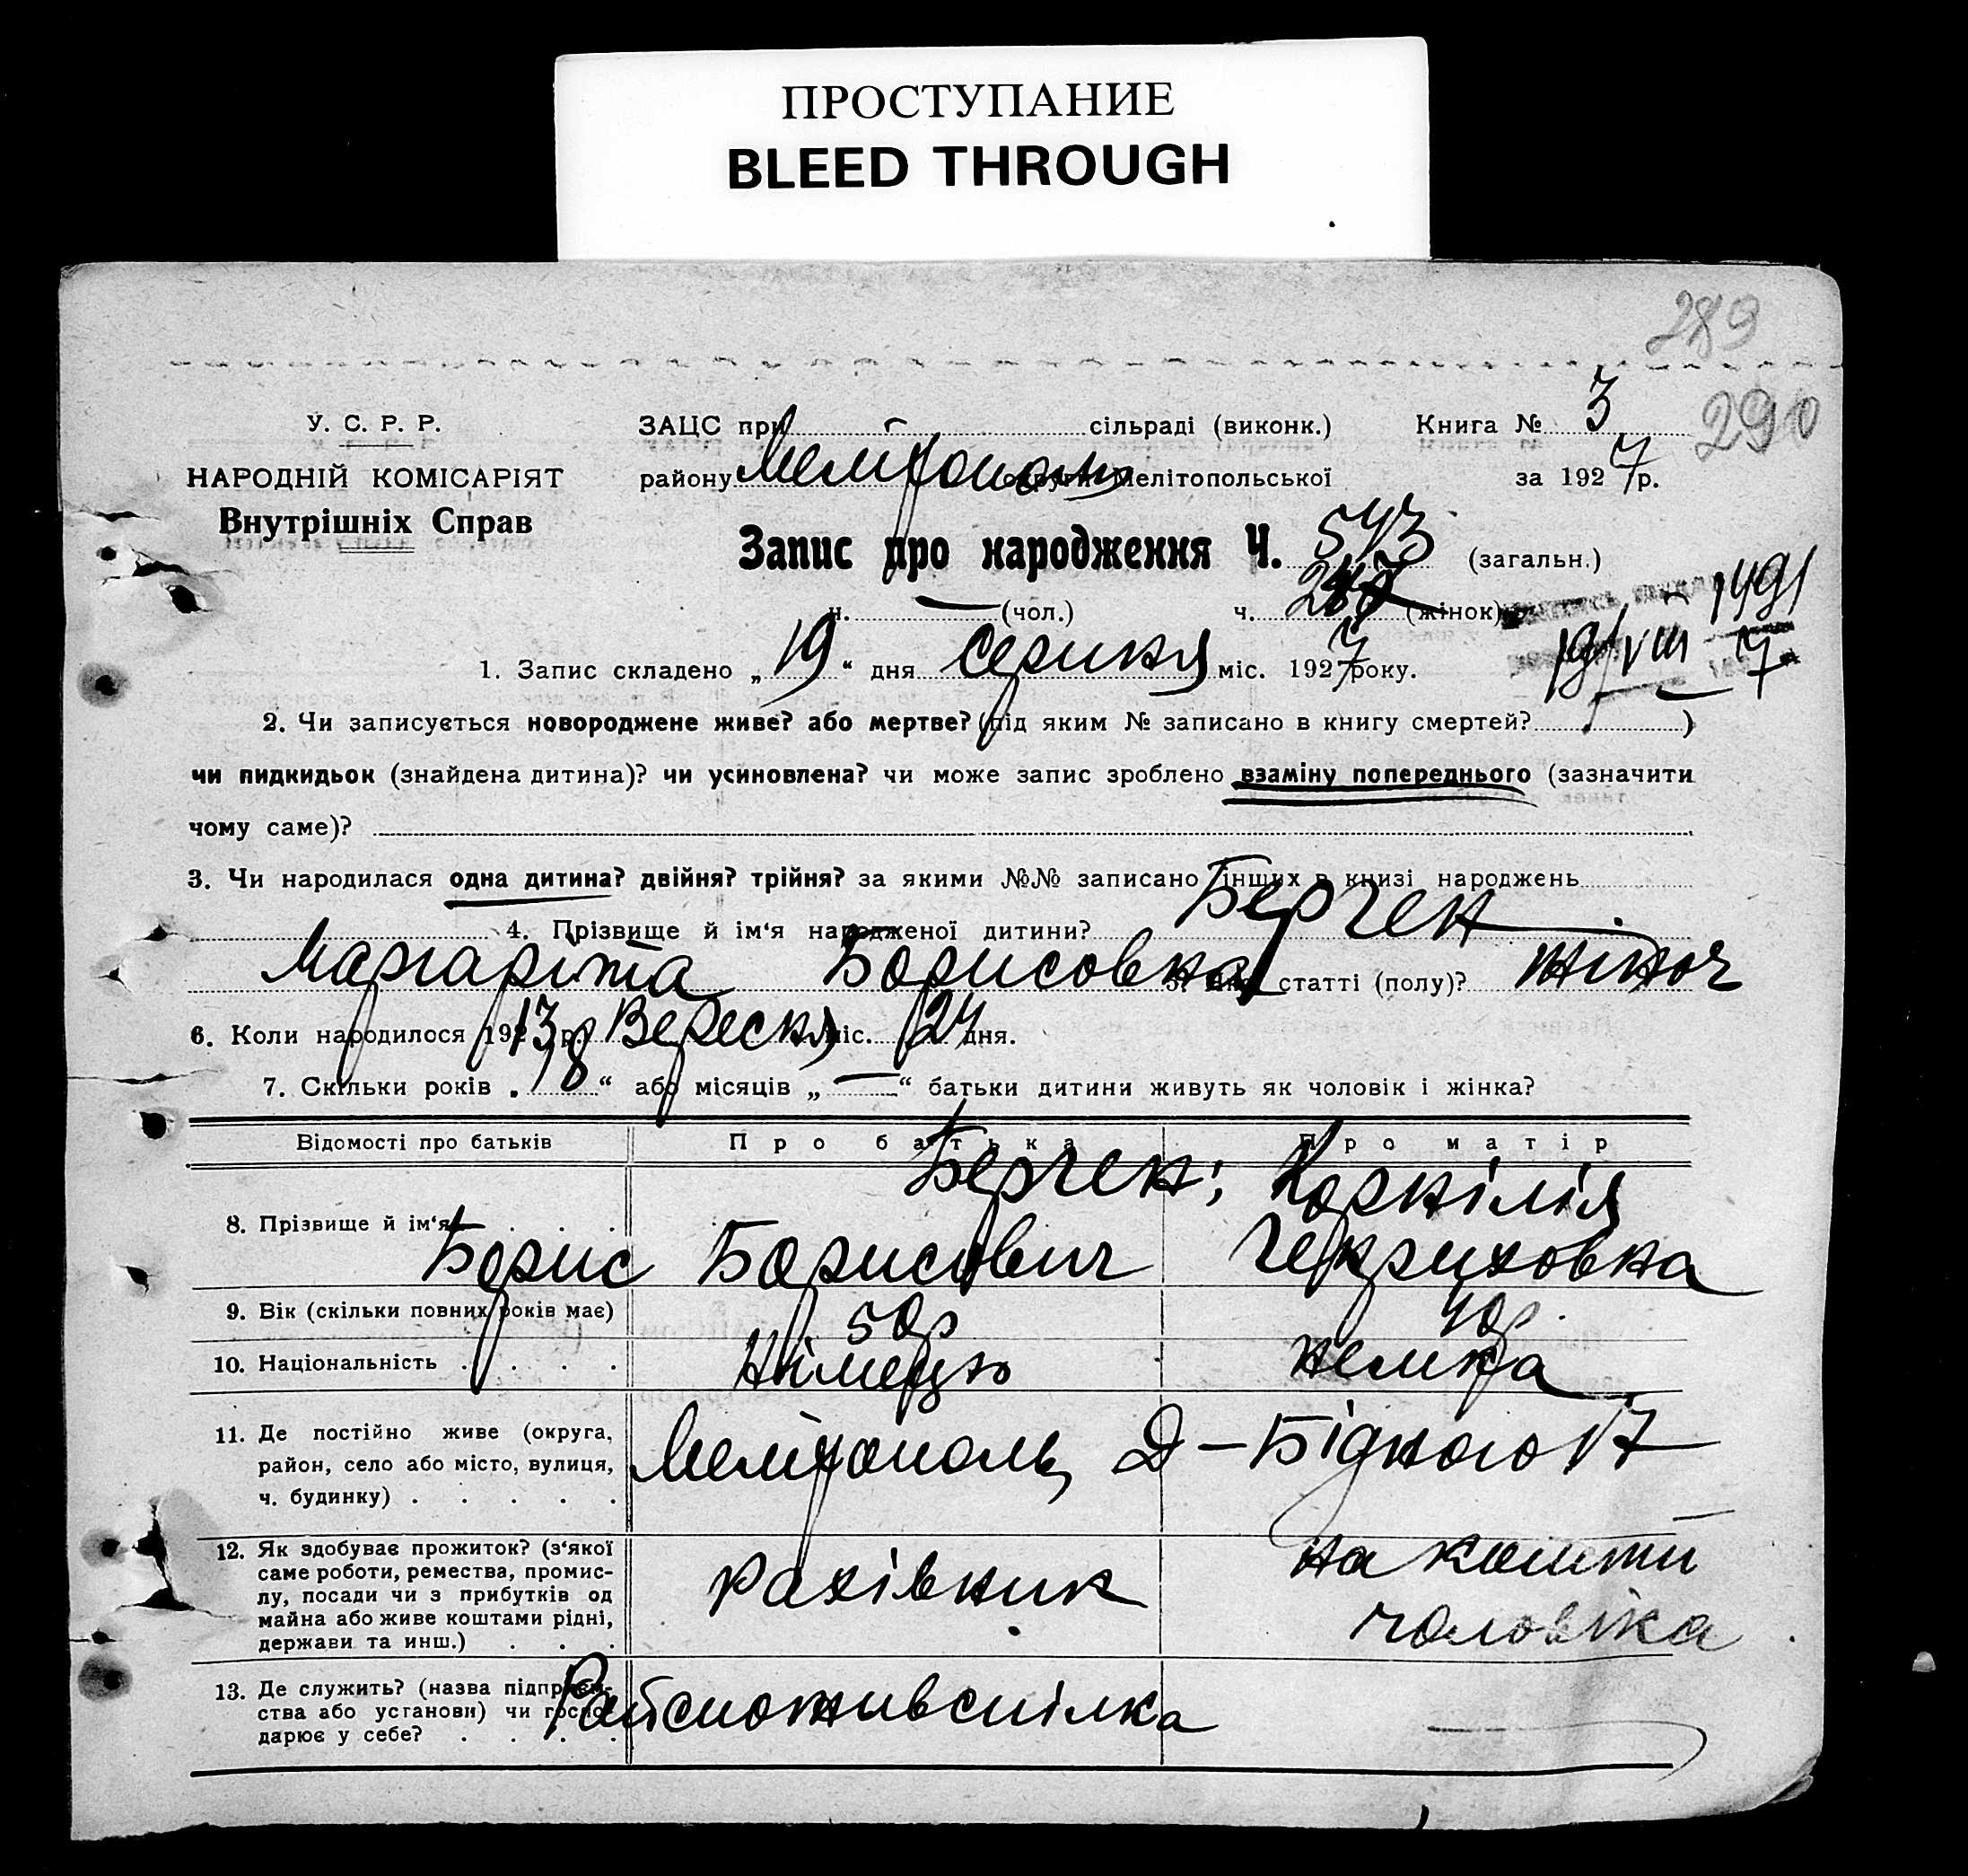 ПРОСТУПАНИЕ
BLEED THROUGH
289
У. С. Р. Р.
ЗАЦС при сільраді (виконк.)
Книга № 3
290
НАРОДНІЙ КОМІСАРІЯТ
району Мелітополь округи Мелітопольської
за 1927 р.
Внутрішніх Справ
Запис про народження Ч. 543 (загальн.)
ч. — (чол.) ч. (жінок)
1491
1. Запис складено „19“ дня Серпня міс. 1927 року.
19/VIII – 7
2. Чи записується новороджене живе? або мертве? (під яким № записано в книгу смертей? )
чи пидкидьок (знайдена дитина)? чи усиновлена? чи може запис зроблено взаміну попереднього (зазначити
чому саме)?
3. Чи народилася одна дитина? двійня? трійня? за якими №№ записано інших в книзі народжень
4. Прізвище й ім‘я народженої дитини? Берген
Маргаріта Борисовна 5. Якої статті (полу)? жіноч
6. Коли народилося 192 13 р. Вересня міс. 24 дня.
7. Скільки років „18“ або місяців „—“ батьки дитини живуть як чоловік і жінка?
Відомості про батьків
Про батька
Про матір
Берген; Корнілія
8. Прізвище й ім‘я . . .
Борис Борисович
Генриховна
9. Вік (скільки повних років має)
50р
40р.
10. Національність . . . .
Німець
немка
11. Де постійно живе (округа,
район, село або місто, вулиця,
ч. будинку) . . . . .
Мелітополь, Д – Бідного 17
12. Як здобуває прожиток? (з‘якої
саме роботи, ремества, промис-
лу, посади чи з прибутків од
майна або живе коштами рідні,
держави та инш.) . . .
рахівник
на кошти
чоловіка
13. Де служить? (назва підприєм-
ства або установи) чи госпо-
дарює у себе? . . . .
Райспоживспілка